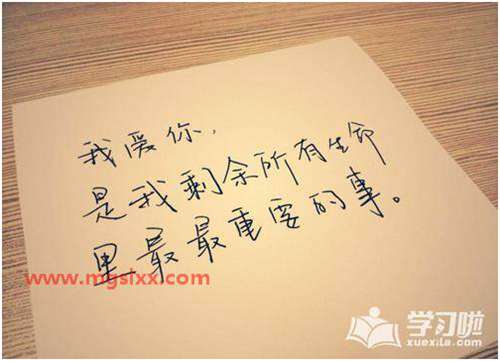 我爱你，
是我剩余所有生命
里最最重要的事。
www.mgslxx.com
学习啦
xuexila.com